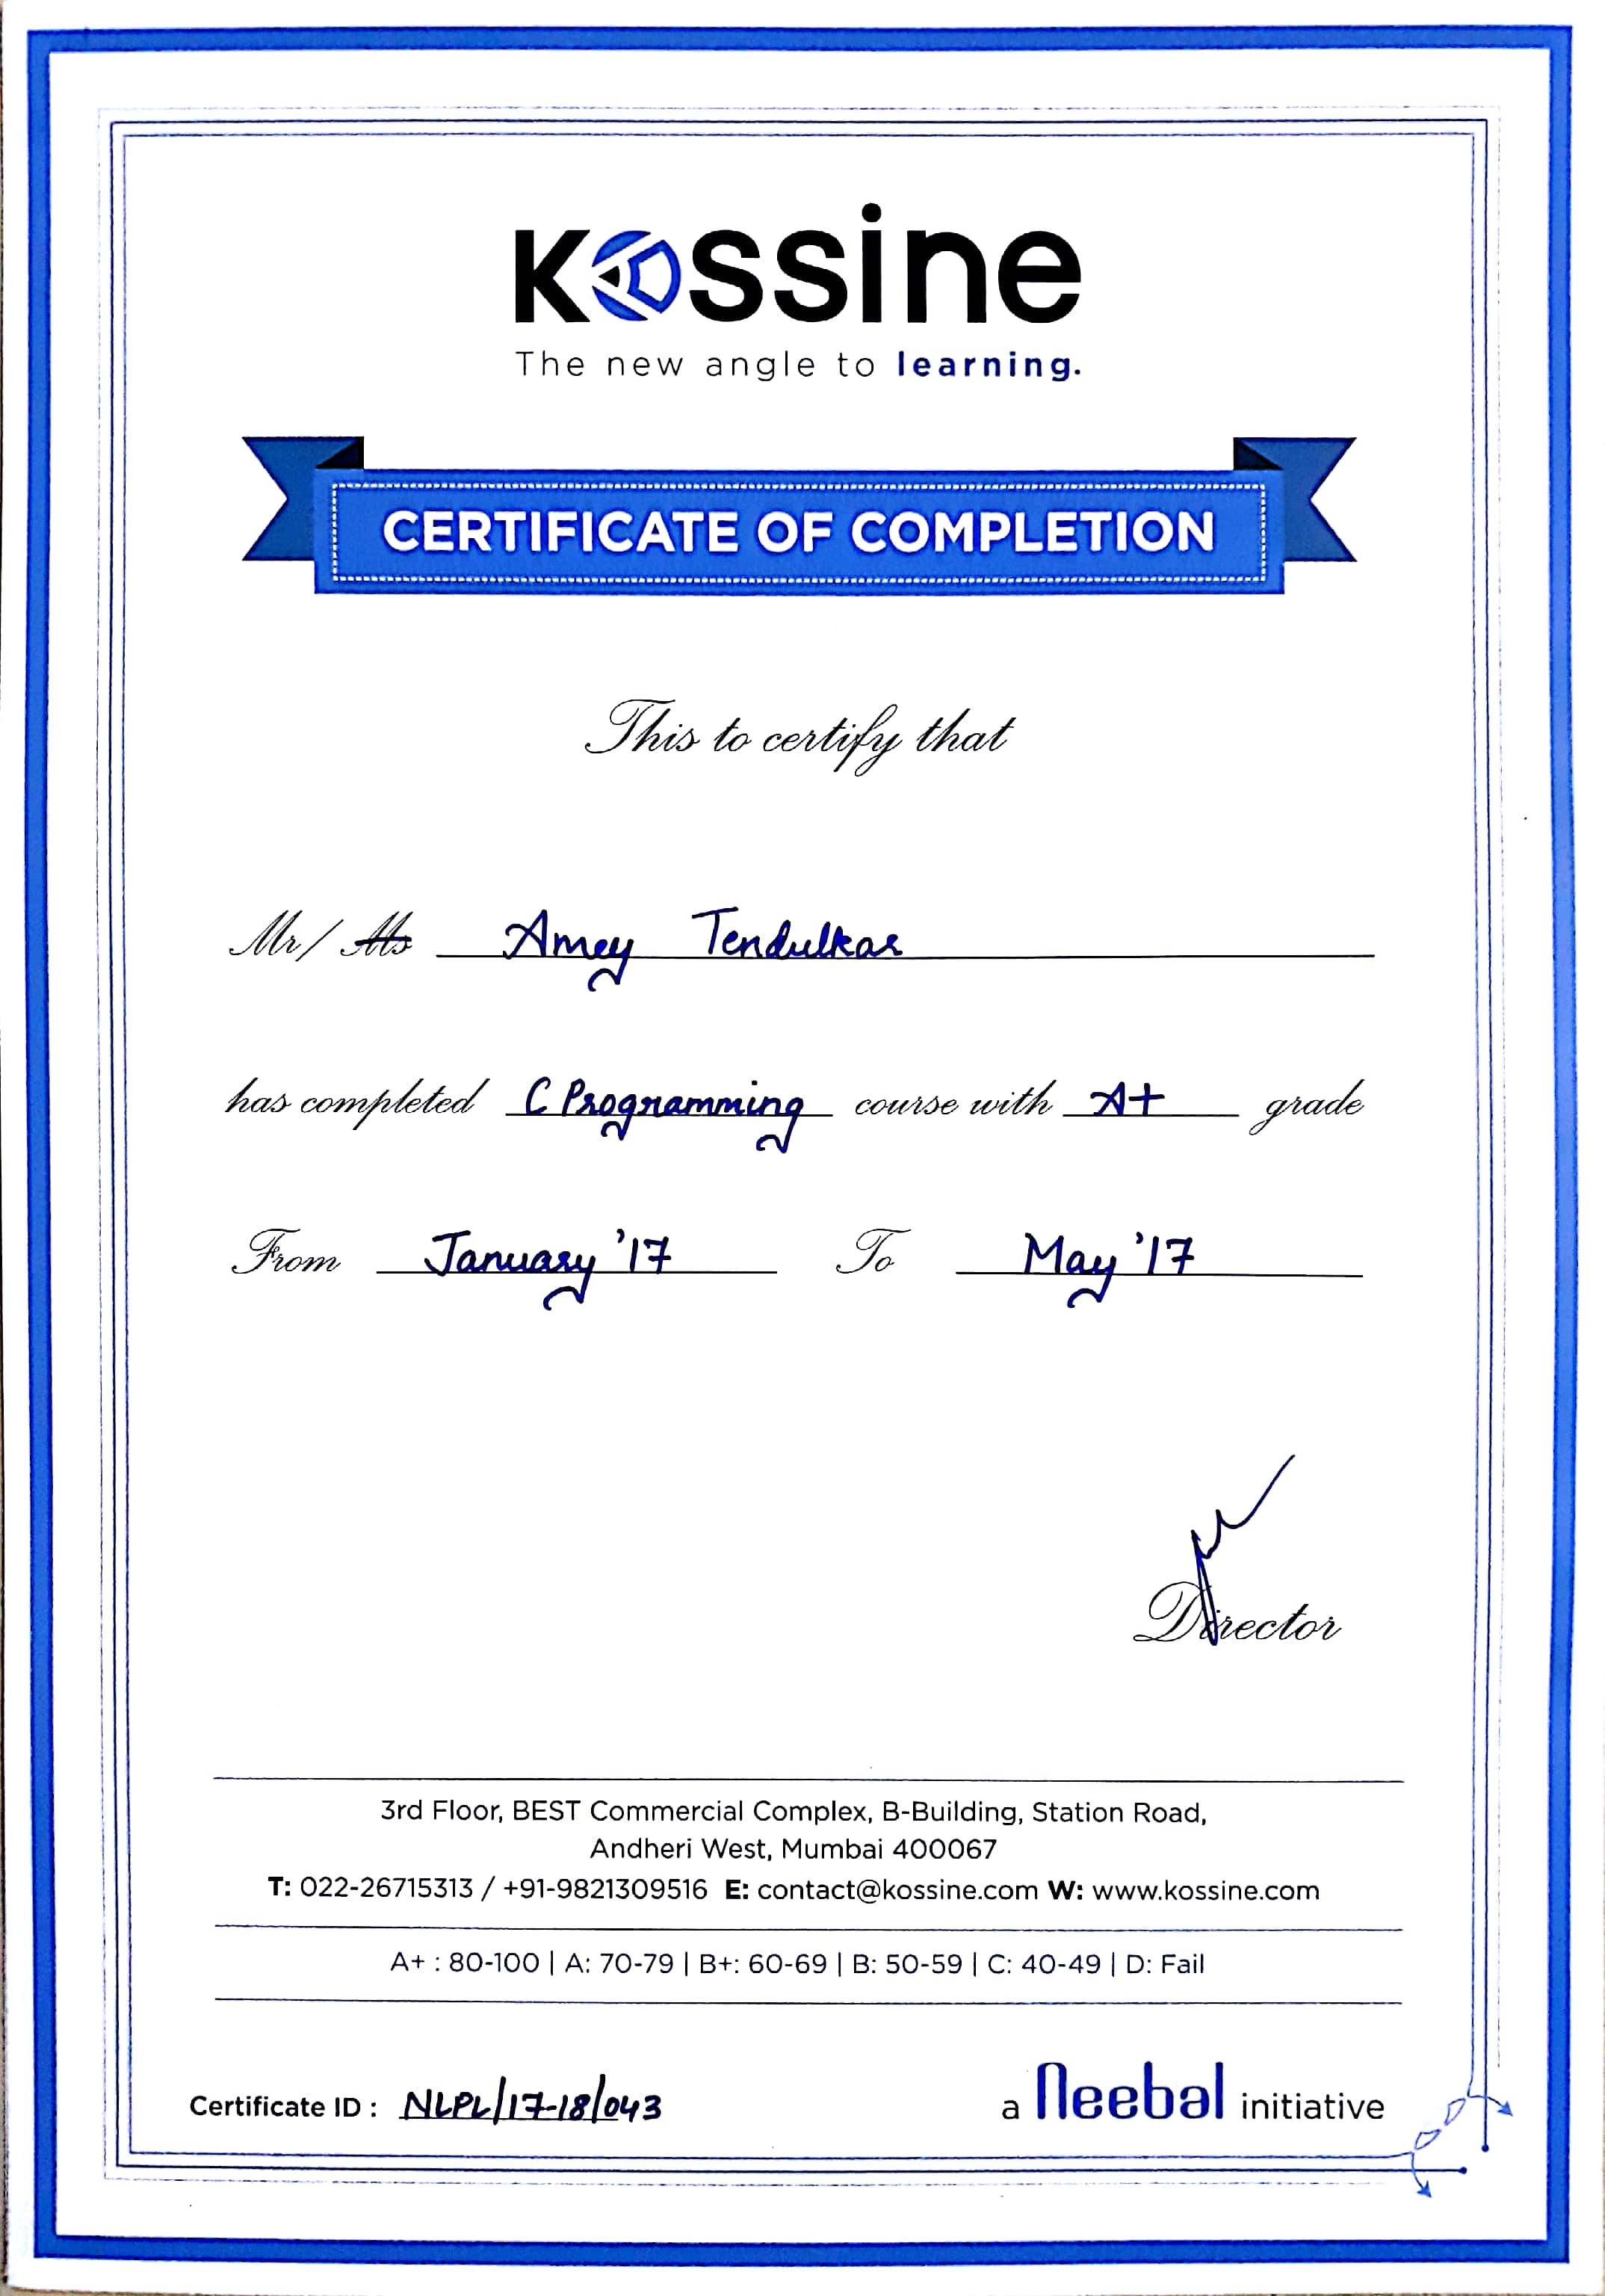 Kossine
The new angle to learning.
CERTIFICATE OF COMPLETION
This to certify that
Mr/ Ms Amey Tendulkar
has completed C Programming course with A+ grade
From January '17 To May '17
Director
3rd Floor, BEST Commercial Complex, B-Building, Station Road,
Andheri West, Mumbai 400067
T: 022-26715313 / +91-9821309516 E: contact@kossine.com W: www.kossine.com
A+ : 80-100 | A: 70-79 | B+: 60-69 | B: 50-59 | C: 40-49 | D: Fail
Certificate ID : NLPL/17-18/043
a neebal initiative